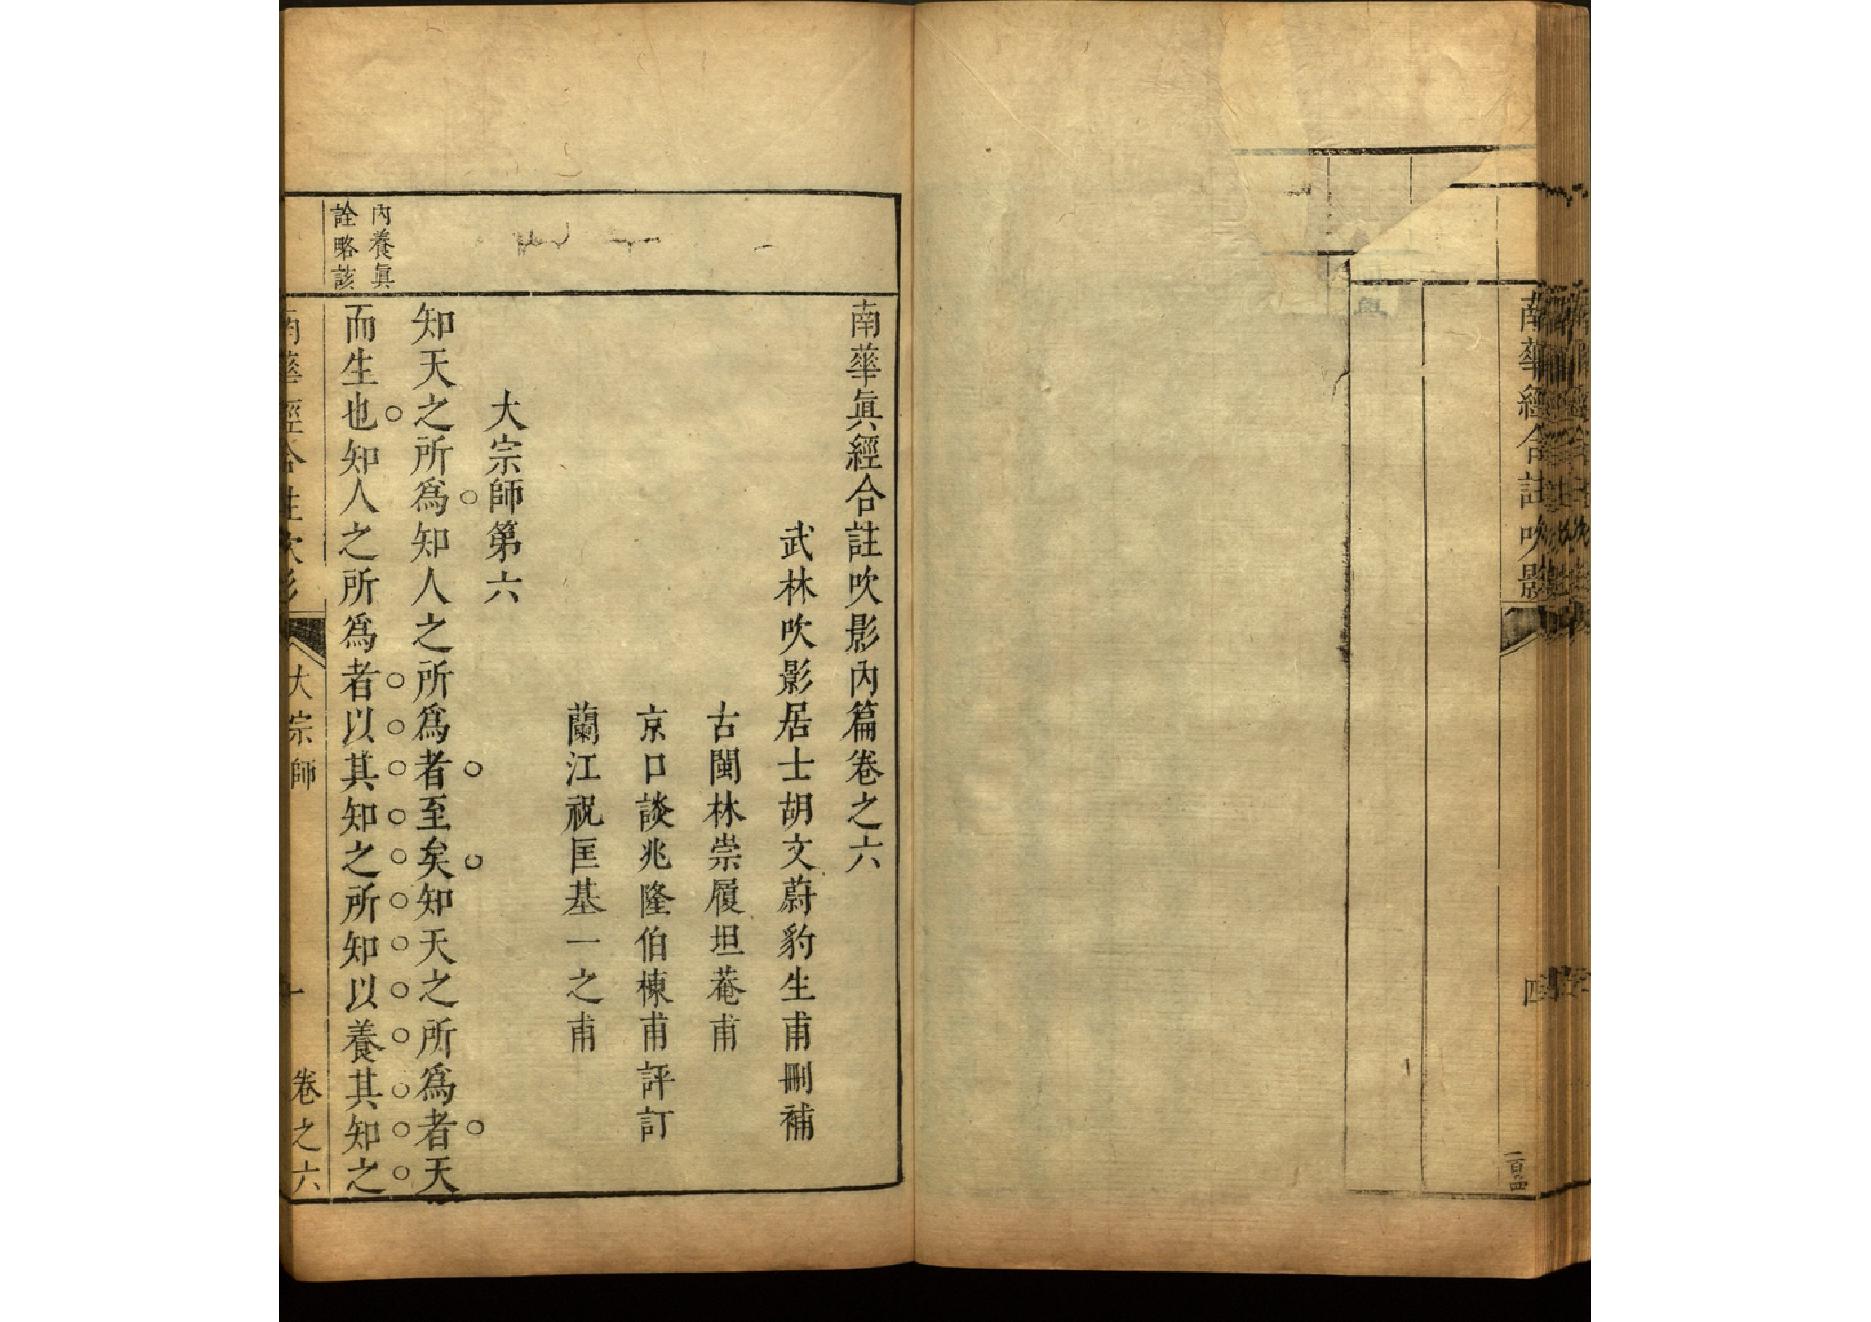 南華經合註吹影
四
一百四
南華眞經合註吹影內篇卷之六
武林吹影居士胡文蔚豹生甫刪補
古閩林崇履坦菴甫
京口談兆隆伯棟甫評訂
蘭江祝匡基一之甫
大宗師第六
內養眞
詮略該
知天之所爲知人之所爲者至矣知天之所爲者天
而生也知人之所爲者以其知之所知以養其知之
南華經合註吹影
大宗師
一
卷之六